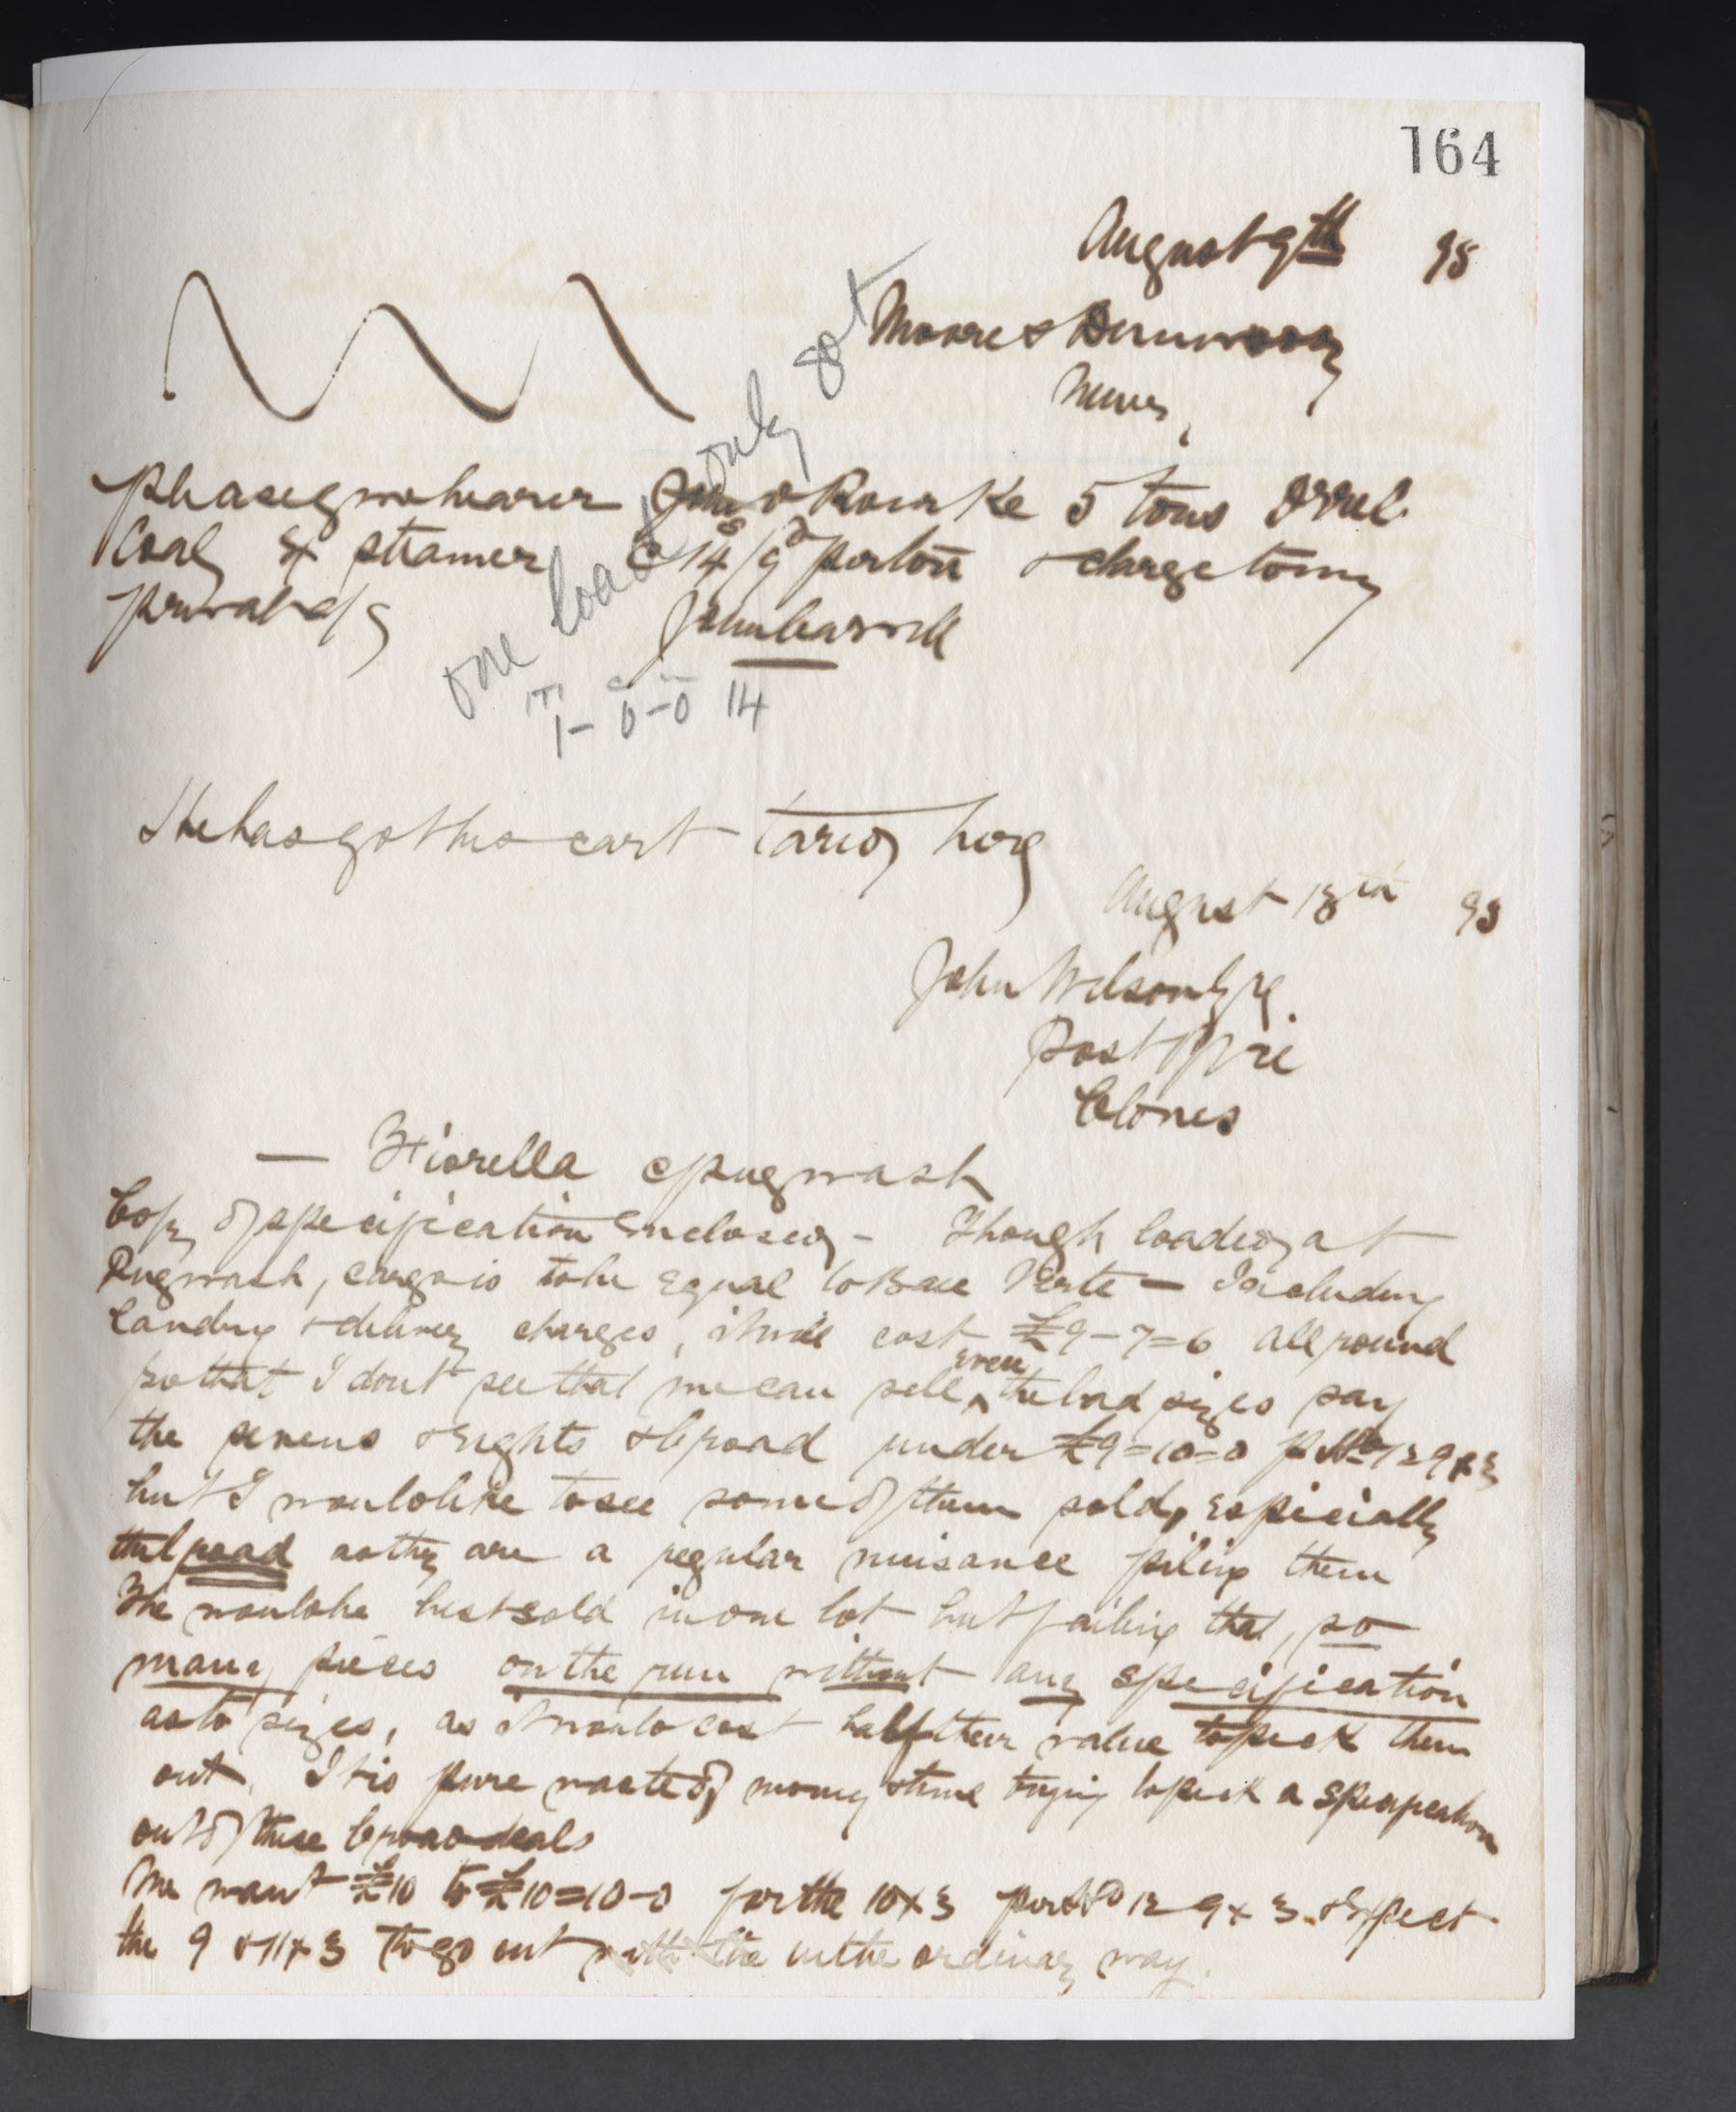 164
August 9th 98
Moore &
Newry
Please give bearer John O Rourke 5 tons Orrel
Coal ex steamer @ 14s/9d per ton & charge to my
private a/c
John Carroll
one load only got
T c
1 - 0 - 0 14
He has got his cart tared here
August 13th 98
John Wilson Esqre
Post Office
Clones
— Fiorella c/o Pugwash
Copy of specification Enclosed - Though loaded at
Pugwash, cargo is to be Equal to Baie Verte — Including
Landing & delivery charges, it will cost £9-7=6 all round
so that I dont see that we can sell even the bad sizes say
the sevens & Eights & broad under £9=10=0 p 12 9x3
but I would like to see some of them sold, Especially
the broad as they are a regular nuisance piling them
The would be best sold in one lot but failing that, so
many pieces on the run without any specification
as to sizes, as it would cost half their value to pick them
out. It is pure waste of money & time trying to pick a specification
out of these broad deals
We want £10 to £10=10-0 for the 10x3 per 12 9x3. & Expect
the 9 & 11x3 to go out with the in the ordinary way.